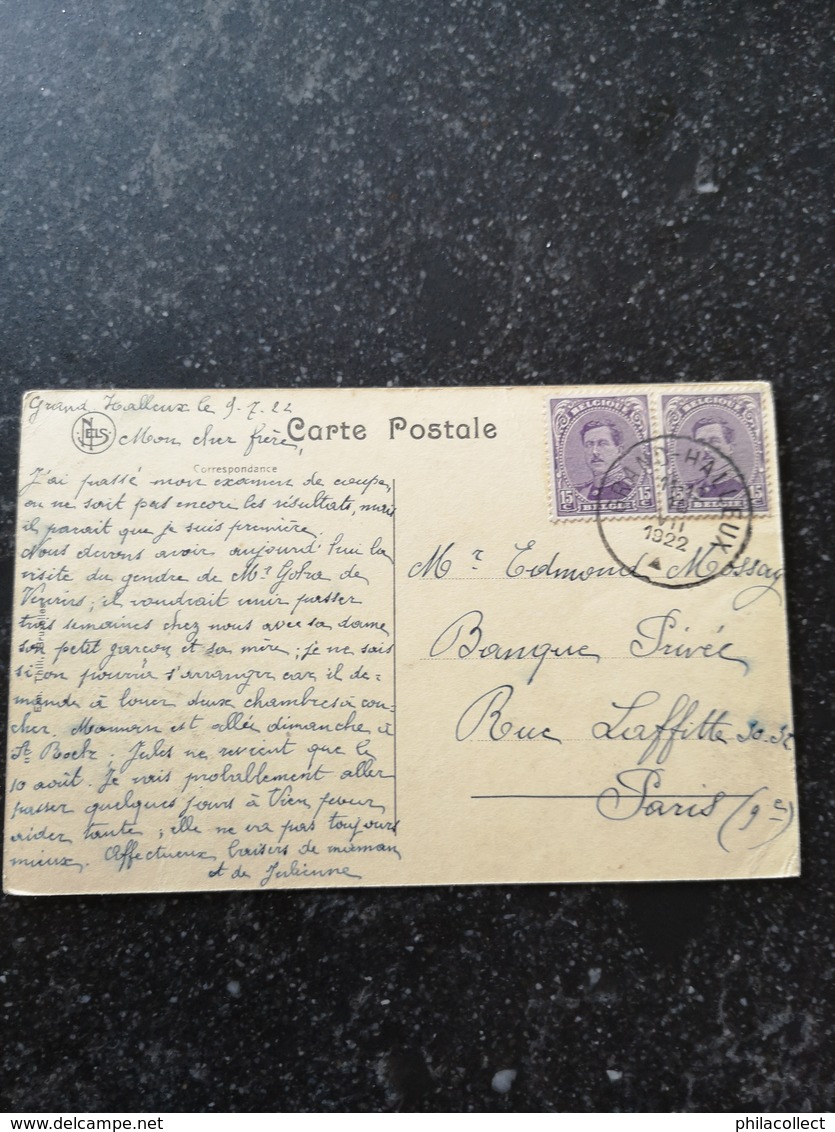 Grand Halleux le 9.7.22
NELS
Mon cher frère,
Carte Postale
Correspondance
J'ai passé mon examen de coupe,
on ne sait pas encore les résultats, mais
il paraît que je suis première.
Nous devons avoir aujourd'hui la
visite du gendre de Mr de
; il voudrait venir passer
trois semaines chez nous avec sa dame
son petit garçon et sa mère ; je ne sais
si on pourra s'arranger car il de-
mande à louer deux chambres à cou-
cher. Maman est allée dimanche à
St Roch. Jules ne revient que le
10 août. Je vais probablement aller
passer quelques jours à Vien pour
aider tante ; elle ne va pas toujours
mieux. Affectueux baisers de maman
et de Julienne
BELGIQUE
15 C 15 C
BELGIË
BELGIQUE
15 C 15 C
BELGIË
GRAND-HALLEUX
VII
1922
Mr Edmond Mossay
Banque Privée
Rue Laffitte 30-32
Paris (9e)
delcampe.net
philacollect